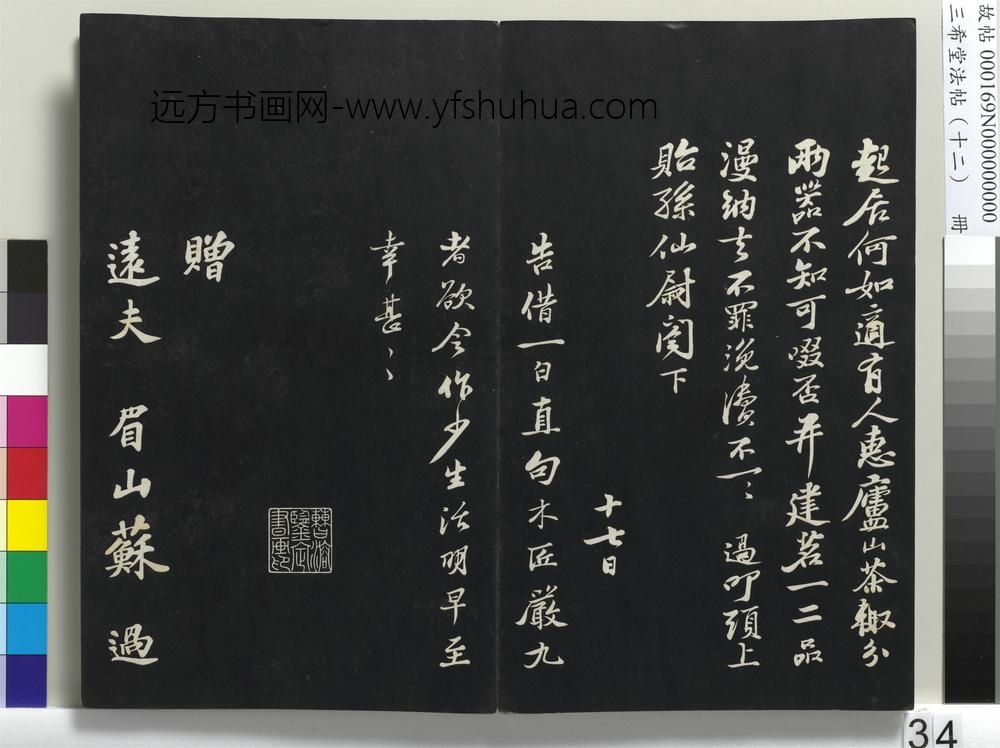 故帖 000169N000000000
三希堂法帖(十二) 冊
远方书画网-www.yfshuhua.com
起居何如適有人惠廬山茶輒分
兩器不知可啜否并建茗一二品
漫納去不罪浼瀆不一〻 過叩頭上
貽孫仙尉閣下
十七日
告借一白直句木匠嚴九
者欲令作少生活明早至
幸甚〻
贈
遠夫 眉山蘇過
34